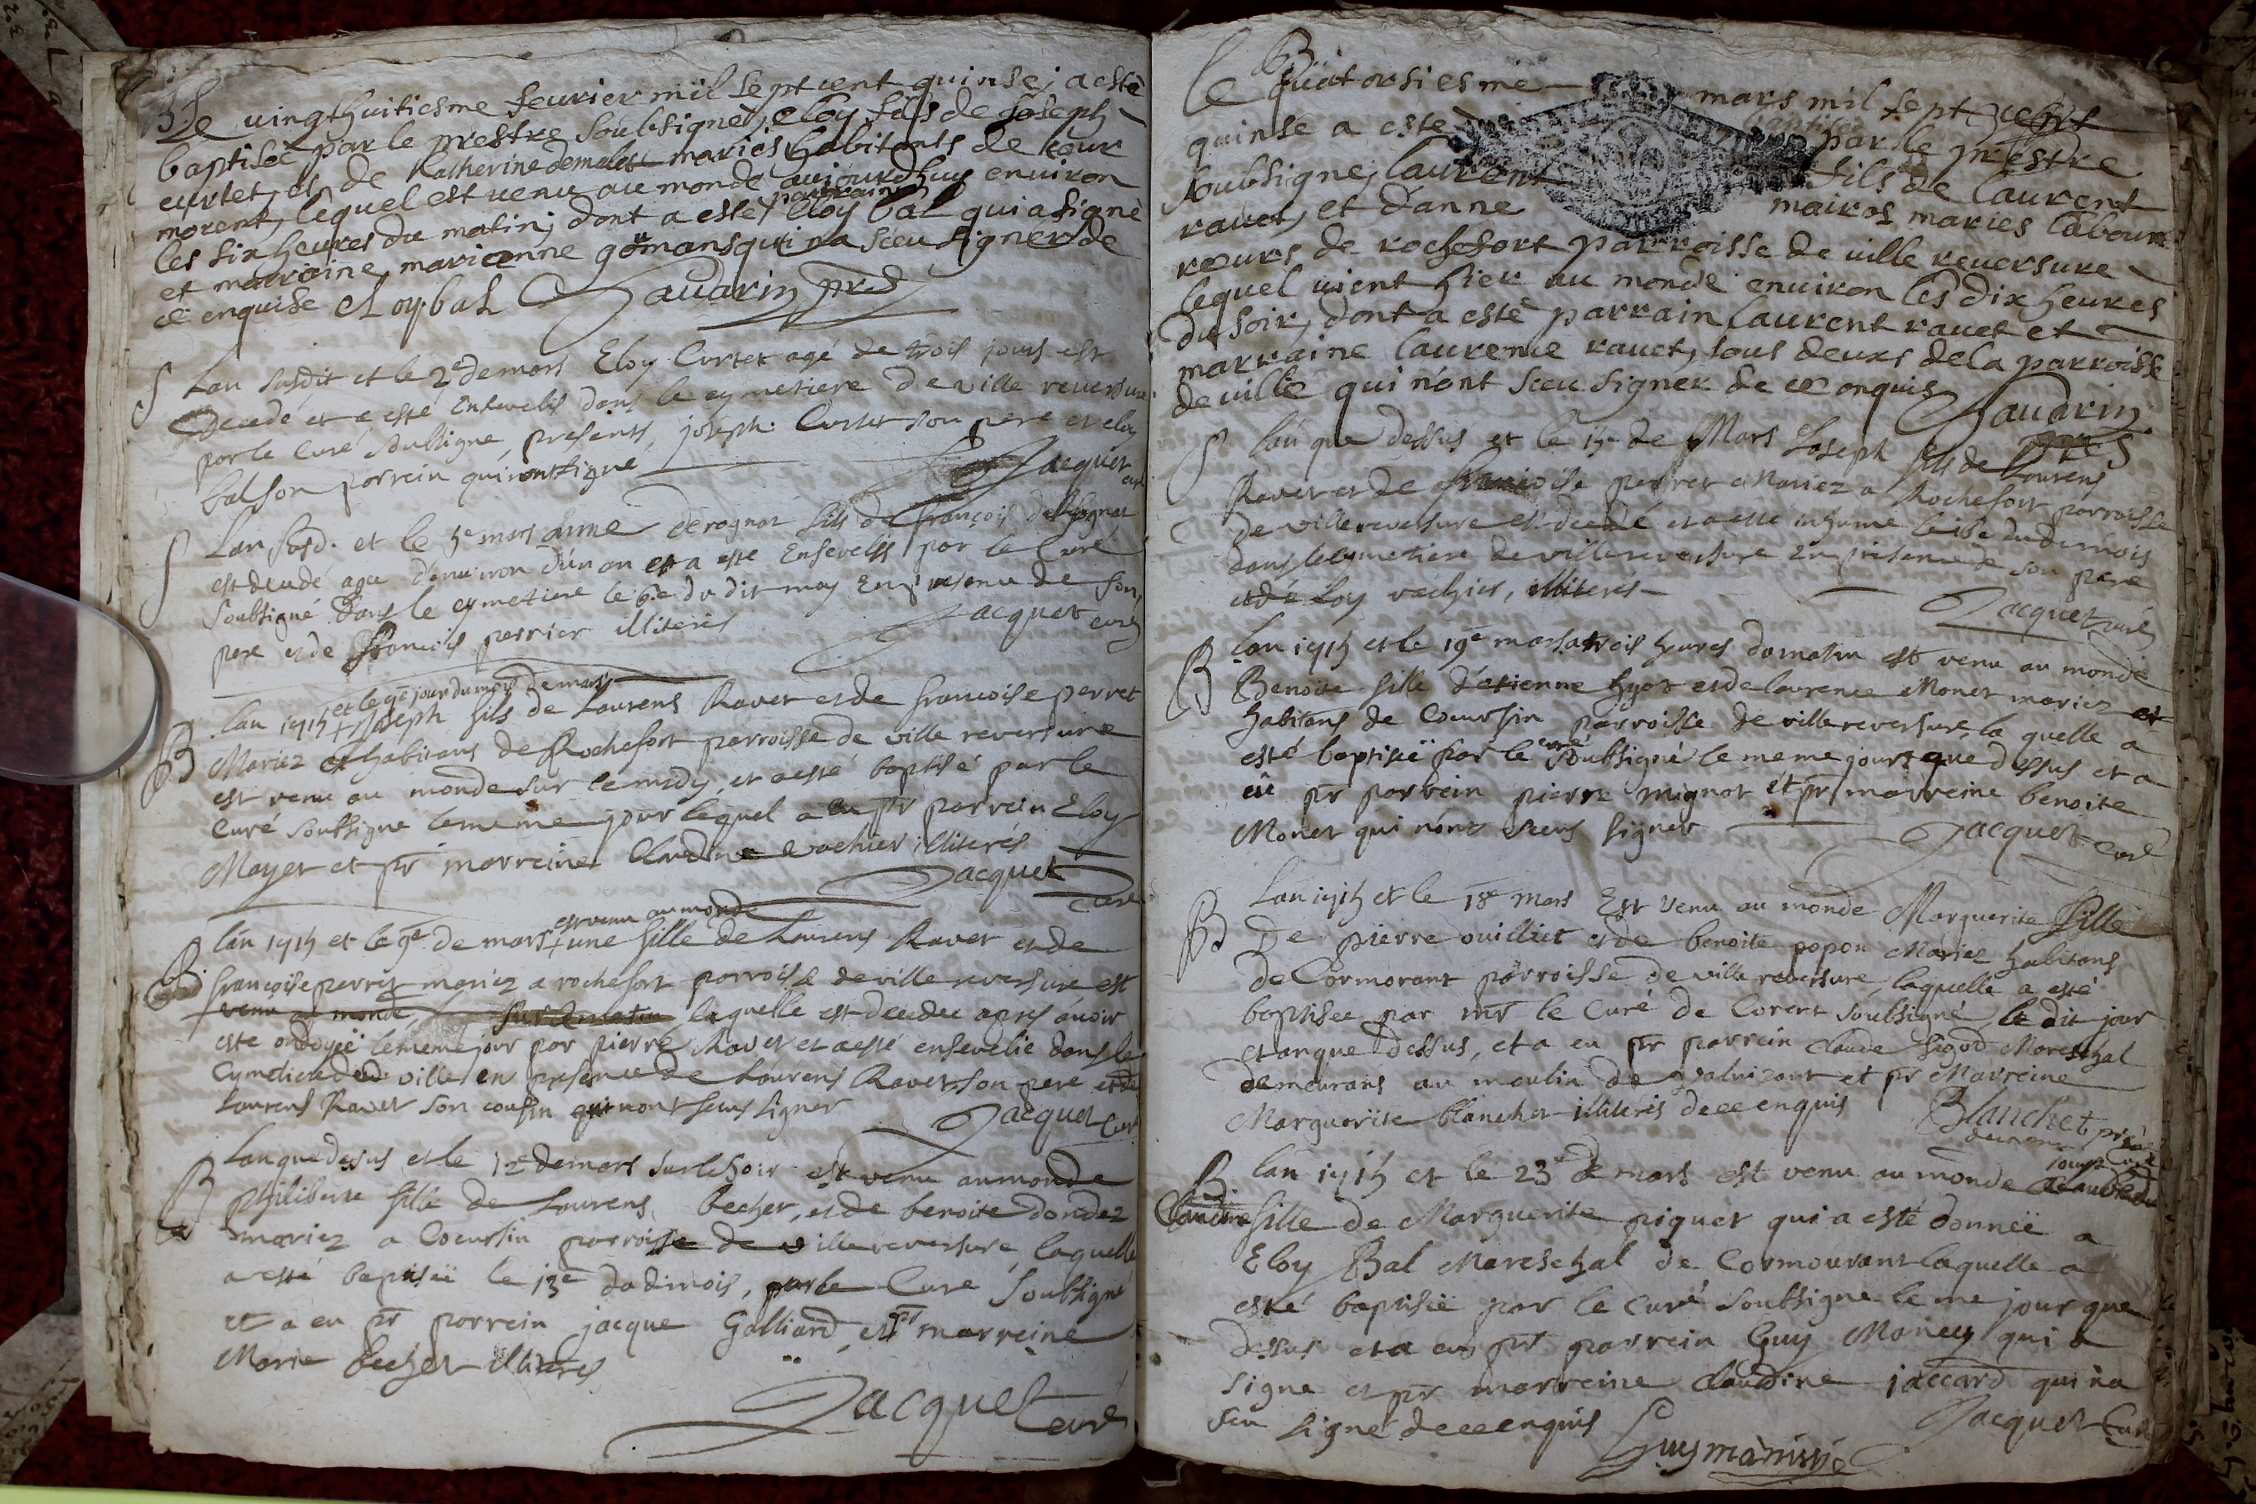 B Le vingthuitiesme feurier mil sept cent quinse, a esté
baptisé par le prestre soubsigne, eloy fils de Joseph
curtet, et de Katherine demolet maries habitants de
morent, lequel est venu au monde aujourdhuy environ
les six heures du matin, dont a esté parrain eloy bal qui a signé
et marraine, marienne gomans qui na sceu signer de
ce enquise eloy bal Sauarin prs
S Lan susdit et le 2e de mars Eloy Curtet agé de trois jours est
decedé et a esté Ensevelis dans le cymetiere de ville reversure
par le Curé soubsigne, presents, joseph Curtet son pere et eloy
bal son parrein qui ont signé Jacquet curé
S Lan susd. et le 5e mars anne derognat fils de françois derognat
est decedé agee d'environ d'un an et a esté Ensevelis par le Curé
soubsigné dans le cymetiere le 6e du dit moy En presence de son
pere et de françois perrier illiteres Jacquet curé
et le 9e jour du mois de mars
B lan 1715 + joseph fils de Laurens Ravet et de francoise perret
Mariez et habitans de Rochefort parroisse de ville reversure
est venu au monde sur le midy, et a esté baptisé par le
Curé soubsigne le meme jour lequel a eu pr parrein Eloy
Mayet et pr marreine Claudine vachier illiterés
Jacquet Curé
est venu au monde
B lan 1715 et le 9e de mars + une fille de Laurens Ravet et de
françoise perret mariez a rochefort parroisse de ville reversure est
venu au monde, sur le matin laquelle est decedee apres avoir
esté ondoyée le meme jour par pierre Ravet et a esté ensevelie dans le
Cymetiere de ville en presence de Laurens Ravet son pere et de
Laurens Ravet son cousin qui nont sceus signer
Jacquet Curé
B Lan que dessus et le 12e de mars sur le soir est venu au monde
philiberte fille de Laurens becher, et de benoite dondez
mariez a Coeursin parroisse de ville reversure, laquelle
a esté baptiseé le 13e du di mois, par le Curé soubsigné
et a eu pr parrein jacque Galliard, et pr marreine
Marie becher illiteres
Jacquet curé
B
Le quatorsiesme mars mil sept cent
quinse a esté baptisé par le prestre
soubsigne, laurent fils de laurent
ravet, et d'anne mairos maries labou
reurs de rochefort parroisse de ville reuersure
lequel vient hier au monde environ les dix heures
du soir, dont a esté parrain laurent rauet et
marraine laurence rauet, tous deux de la parroisse
de ville qui n'ont sceu signer de ce enquis
Sauarin prs
S lan que dessus et le 15e de Mars Joseph fils de Laurens
Ravet et de francoise perret Mariez a Rochefort parroisse
de ville reversure est decedé et a esté inhumé le 16e du de mois
dans le cymetiere de ville reversure En presence de son pere
et de Eloy vachier, illiteres
Jacquet curé
B Lan 1715 et le 19e mars a trois heures du matin est venu au monde
Benoite fille d'etienne hyot et de laurence Monet mariez et
habitans de Coeursin parroisse de ville reversure, la quelle a
esté baptiseé par le curé soubsigné le meme jour que dessus et a
eu pr parrein pierre mignot et pr marreine benoite
Monet qui n'ont sceus signer
Jacquet curé
B Lan 1715 et le 18e mars Est venu au monde Marguerite fille
De pierre ouilliet et de benoite popon Mariez habitans
de Cormorant parroisse de ville reversure, laquelle a esté
baptisee par mr le Curé de Corent soubsigné le dit jour
et an que dessus, et a eu pr parrein claude Mareschal
demeurans au moulin de et pr Marreine
Marguerite blanchet illiteris de ce enquis Blanchet
B lan 1715 et le 23e de mars est venu au monde
Claudine fille de Marguerite piquet qui a esté donneé a
Eloy Bal Mareschal de Cormourant laquelle a
esté baptiseé par le Curé soubsigne le me jour que
dessus et a eu pr parrein Guy Money qui a
signe et pr marreine claudine jaccard qui na
sceu signer de ce enquis Jacquet Curé
Guy